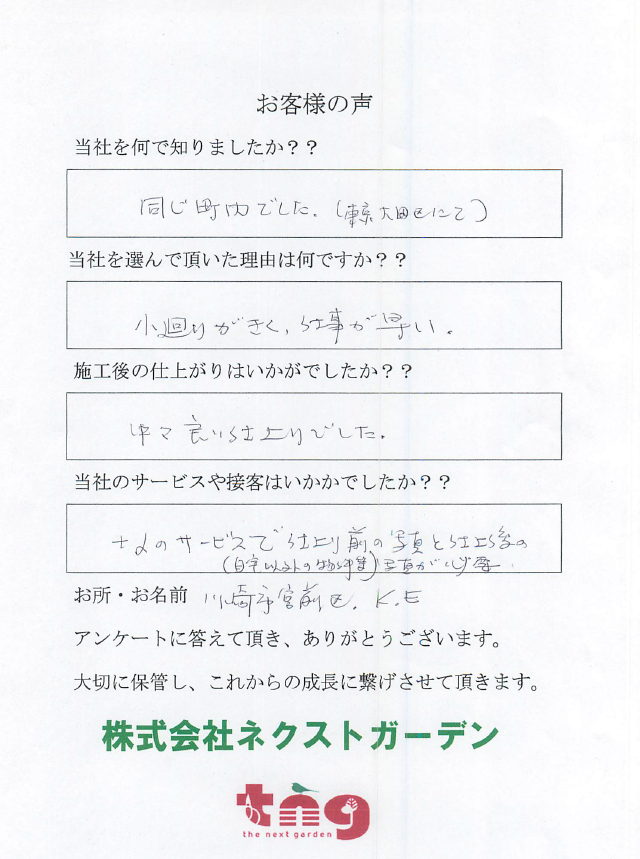 お客様の声
当社を何で知りましたか？？
同じ町内でした。(東京大田区にて)
当社を選んで頂いた理由は何ですか？？
小廻りがきく，仕事が早い。
施工後の仕上がりはいかがでしたか？？
中々良い仕上りでした。
当社のサービスや接客はいかかでしたか？？
+αのサービスで仕上り前の写真と仕上後の
(自宅以外の物件)写真が必要.
お所・お名前 川崎市宮前区. K.E
アンケートに答えて頂き、ありがとうございます。
大切に保管し、これからの成長に繋げさせて頂きます。
株式会社ネクストガーデン
tng
the next garden